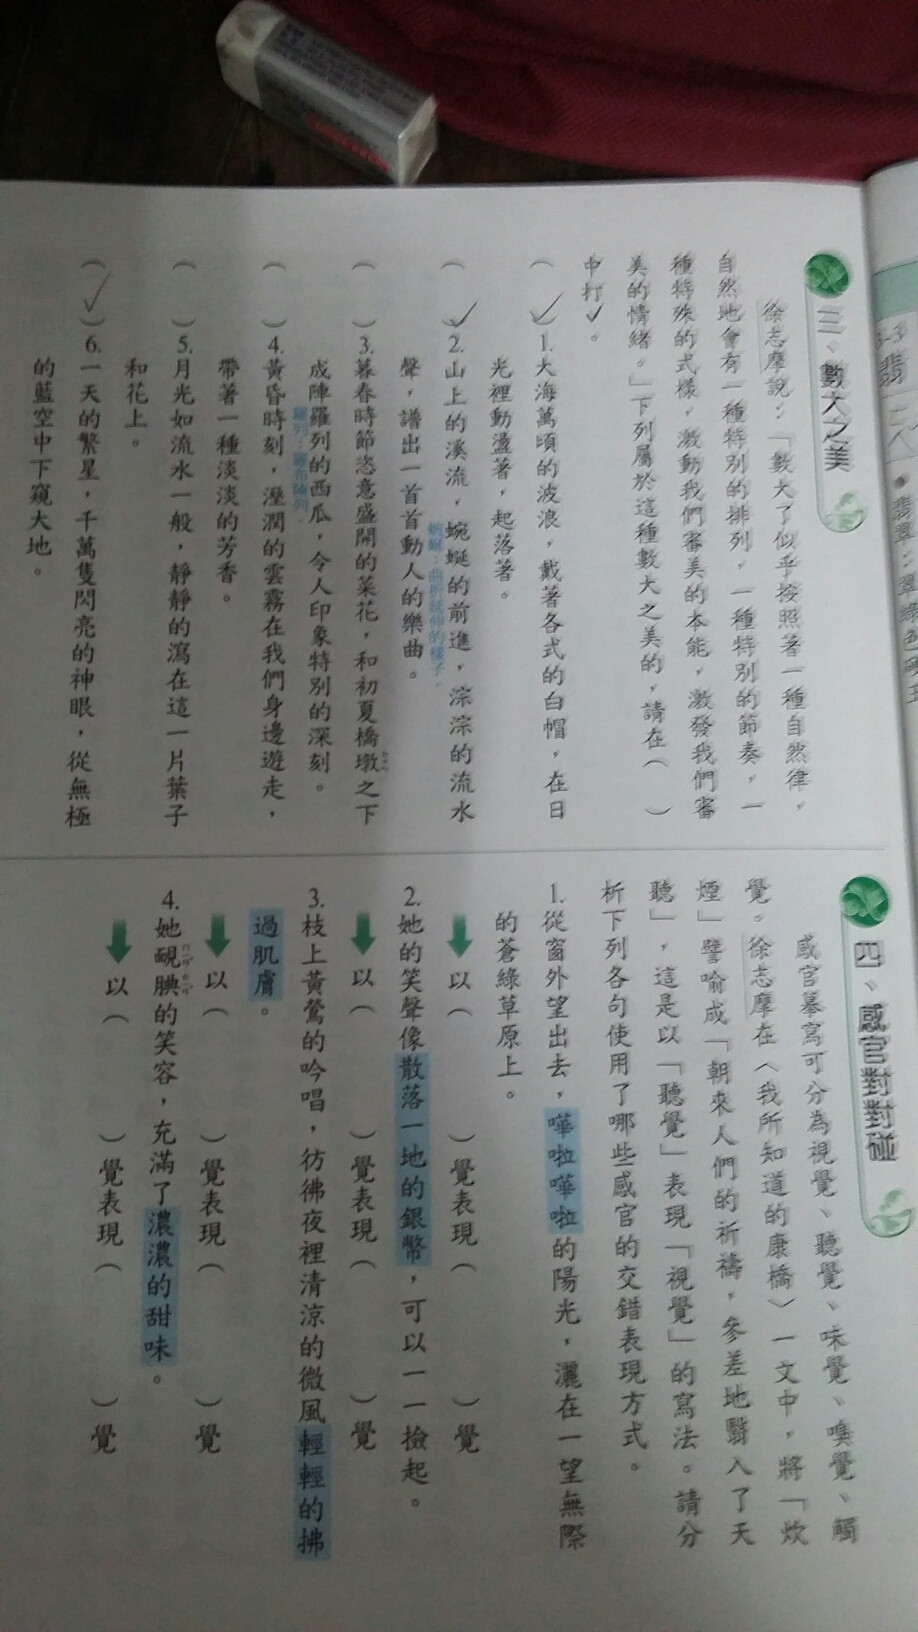 三、數大之美
徐志摩說：「數大了似乎按照著一種自然律，
自然地會有一種特別的排列，一種特別的節奏，一
種特殊的式樣，激動我們審美的本能，激發我們審
美的情緒。」下列屬於這種數大之美的，請在（　）
中打✓。
（✓）1.大海萬頃的波浪，戴著各式的白帽，在日
光裡動盪著，起落著。
（✓）2.山上的溪流，蜿蜒的前進，淙淙的流水
蜿蜒：曲折延伸的樣子。
聲，譜出一首首動人的樂曲。
（　）3.暮春時節恣意盛開的菜花，和初夏橋墩之下
成陣羅列的西瓜，令人印象特別的深刻。
羅列：羅布陳列。
（　）4.黃昏時刻，溼潤的雲霧在我們身邊遊走，
帶著一種淡淡的芳香。
（　）5.月光如流水一般，靜靜的瀉在這一片葉子
和花上。
（✓）6.一天的繁星，千萬隻閃亮的神眼，從無極
的藍空中下窺大地。
四、感官對對碰
感官摹寫可分為視覺、聽覺、味覺、嗅覺、觸
覺。徐志摩在〈我所知道的康橋〉一文中，將「炊
煙」譬喻成「朝來人們的祈禱，參差地翳入了天
聽」，這是以「聽覺」表現「視覺」的寫法。請分
析下列各句使用了哪些感官的交錯表現方式。
1.從窗外望出去，嘩啦嘩啦的陽光，灑在一望無際
的蒼綠草原上。
以（　）覺表現（　）覺
2.她的笑聲像散落一地的銀幣，可以一一撿起。
以（　）覺表現（　）覺
3.枝上黃鶯的吟唱，彷彿夜裡清涼的微風輕輕的拂
過肌膚。
以（　）覺表現（　）覺
4.她靦腆的笑容，充滿了濃濃的甜味。
以（　）覺表現（　）覺